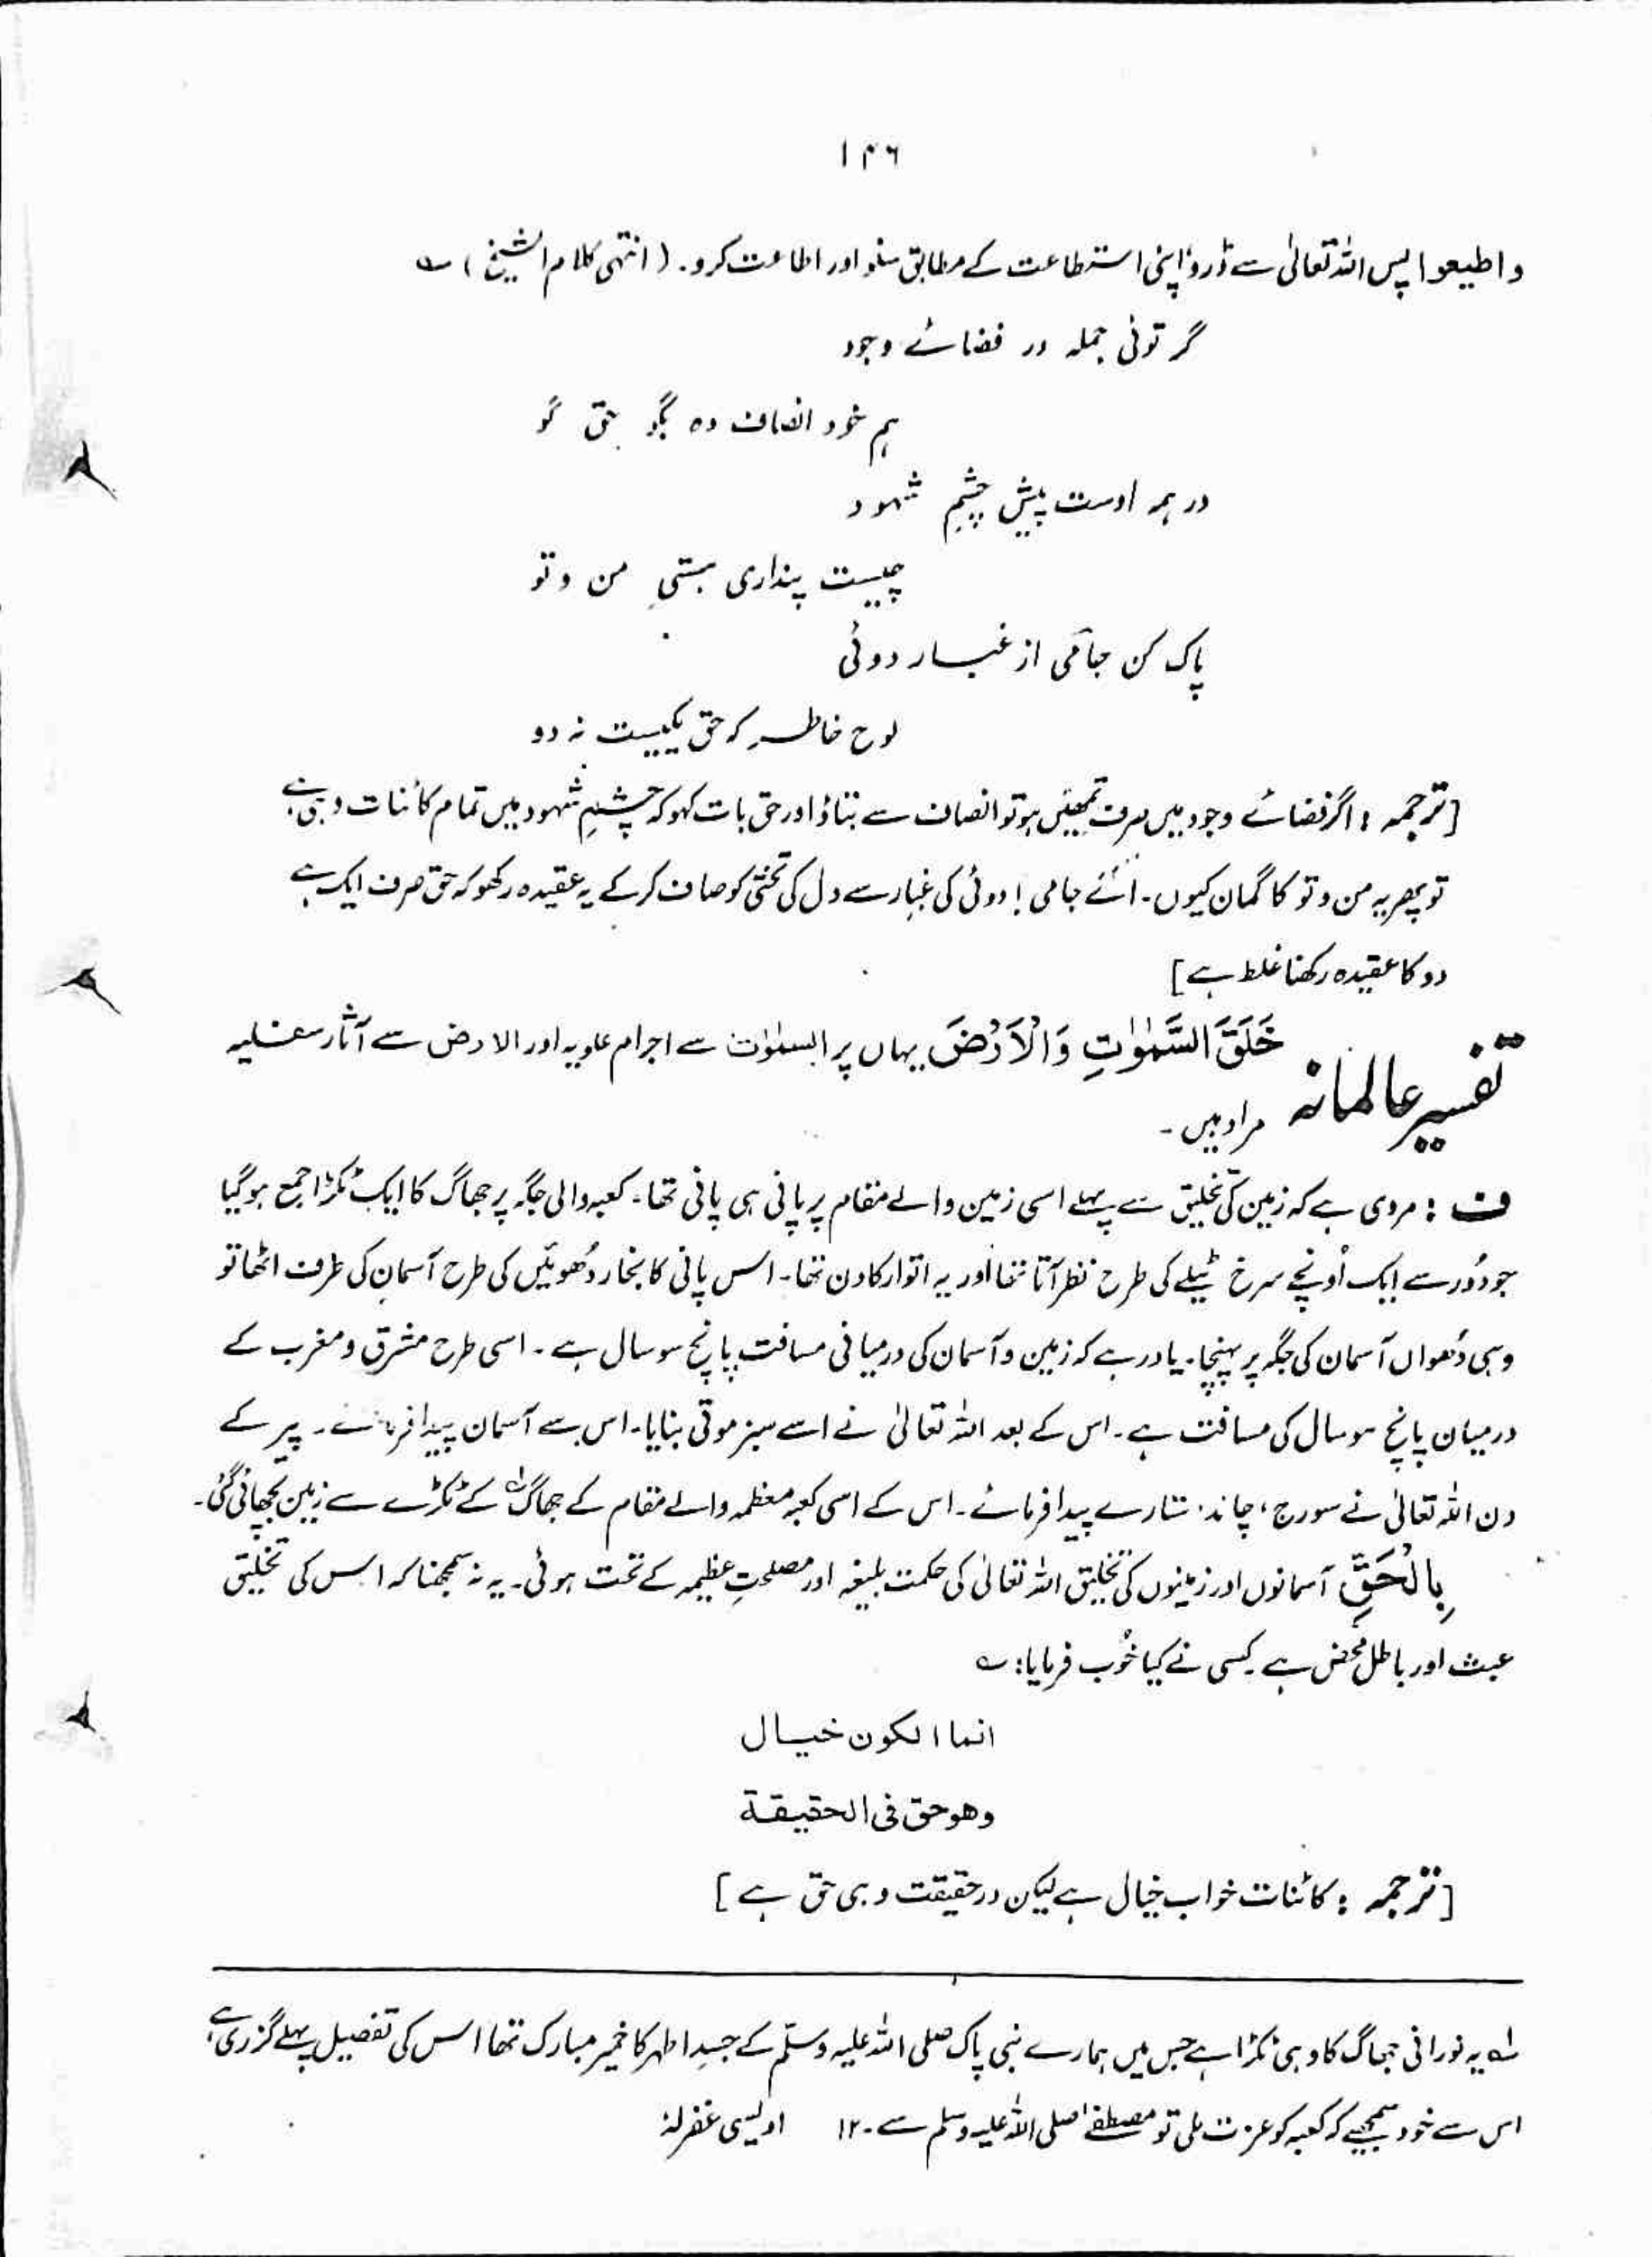 ۱۴۶
واطیعوا پس اللہ تعالیٰ سے ڈرو، اپنی استطاعت کے مطابق سنو اور اطاعت کرو۔ (انتہی کلام الشیخ) ؎
گر توئی جملہ در فضائے وجود
ہم خود انصاف دہ بگو حق گو
در ہمہ اوست پیش چشمِ شہود
چیست پنداری ہستیِ من و تو
پاک کن جامی از غبار دوئی
لوح خاطر کہ حق یکیست نہ دو
[ترجمہ : اگر فضائے وجود میں صرف تمھیں ہو تو انصاف سے بتاؤ اور حق بات کہو کہ چشمِ شہود میں تمام کائنات وہی ہے
تو پھر یہ من و تو کا گمان کیوں۔ اے جامی ! دوئی کی غبار سے دل کی تختی کو صاف کر کے یہ عقیدہ رکھو کہ حق صرف ایک ہے
دو کا عقیدہ رکھنا غلط ہے]
تفسیر عالمانہ خَلَقَ السَّمٰوٰتِ وَالْاَرْضَ یہاں پر السمٰوٰت سے اجرام علویہ اور الارض سے آثار سفلیہ
مراد ہیں۔
ف : مروی ہے کہ زمین کی تخلیق سے پہلے اسی زمین والے مقام پر پانی ہی پانی تھا۔ کعبہ والی جگہ پر جھاگ کا ایک ٹکڑا جمع ہو گیا
جو دُور سے ایک اُونچے سرخ ٹیلے کی طرح نظر آتا تھا اور یہ اتوار کا دن تھا۔ اس پانی کا بخار دُھوئیں کی طرح آسمان کی طرف اٹھا تو
وہی دُھواں آسمان کی جگہ پر پہنچا۔ یاد رہے کہ زمین و آسمان کی درمیانی مسافت پانچ سو سال ہے۔ اسی طرح مشرق و مغرب کے
درمیان پانچ سو سال کی مسافت ہے۔ اس کے بعد اللہ تعالیٰ نے اسے سبز موتی بنایا۔ اس سے آسمان پیدا فرمائے۔ پیر کے
دن اللہ تعالیٰ نے سورج، چاند، ستارے پیدا فرمائے۔ اس کے اسی کعبہ معظمہ والے مقام کے جھاگ۱؎ کے ٹکڑے سے زمین بچھائی گئی۔
بِالْحَقِّ آسمانوں اور زمینوں کی تخلیق اللہ تعالیٰ کی حکمت بلیغہ اور مصلحتِ عظیمہ کے تحت ہوئی۔ یہ نہ سمجھنا کہ اس کی تخلیق
عبث اور باطل محض ہے۔ کسی نے کیا خُوب فرمایا: ؎
انما الکون خیال
وھو حق فی الحقیقۃ
[ترجمہ : کائنات خواب خیال ہے لیکن درحقیقت وہی حق ہے]
۱؎ یہ نورانی جھاگ کا وہی ٹکڑا ہے جس میں ہمارے نبی پاک صلی اللہ علیہ وسلّم کے جسدِ اطہر کا خمیر مبارک تھا اس کی تفصیل پہلے گزری ہے،
اس سے خود سمجھیے کہ کعبہ کو عزت ملی تو مصطفےٰ صلی اللہ علیہ وسلم سے۔ ۱۲ اویسی غفرلہٗ